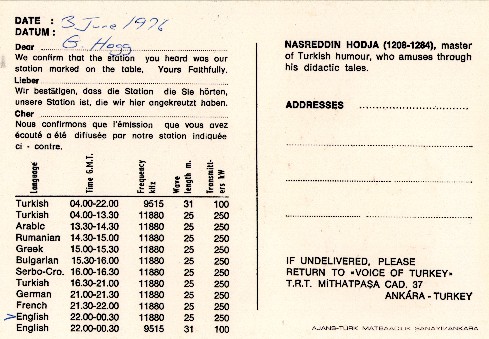 DATE : 3 June 1976
DATUM :
Dear G. Hogg
We confirm that the station you heard was our
station marked on the table. Yours Faithfully.
Lieber
Wir bestätigen, dass die Station die Sie hörten,
unsere Station ist, die wir hier angekreutzt haben.
Cher
Nous confirmons que l'émission que vous avez
écouté a été difiusée par notre station indiquée
ci - contre.
Language Time G.M.T. Frequency khz Wave length m. Transmitters kW
Turkish 04.00-22.00 9515 31 100
Turkish 04.00-13.30 11880 25 250
Arabic 13.30-14.30 11880 25 250
Rumanian 14.30-15.00 11880 25 250
Greek 15.00-15.30 11880 25 250
Bulgarian 15.30-16.00 11880 25 250
Serbo-Cro. 16.00-16.30 11880 25 250
Turkish 16.30-21.00 11880 25 250
German 21.00-21.30 11880 25 250
French 21.30-22.00 11880 25 250
>English 22.00-00.30 11880 25 250
English 22.00-00.30 9515 31 100
NASREDDIN HODJA (1208-1284), master
of Turkish humour, who amuses through
his didactic tales.
ADDRESSES
IF UNDELIVERED, PLEASE
RETURN TO «VOICE OF TURKEY»
T.R.T. MİTHATPAŞA CAD. 37
ANKÁRA - TURKEY
AJANS-TÜRK MATBAACILIK SANAYİİ/ANKARA